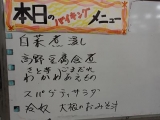 本日のバイキングメニュー
白菜煮浸し
高野豆腐含煮
さといもごまだれ
わかめあえもの
スパゲティサラダ
冷奴 大根のおみそ汁